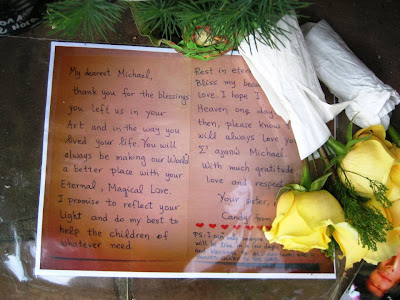 My dearest Michael,
thank you for the blessings
you left us in your
Art and in the way you
lived your life. You will
always be making our World
a better place with your
Eternal, Magical Love.
I promise to reflect your
Light and do my best to
help the children of
whatever need.
Rest in eter
Bliss my be
love. I hope I
Heaven one day
then, please know
will always love yo
Σ' αγαπώ Michael.
With much gratitude
love and respe
Your sister,
Candy from
P.S. I can only imagine
will be like in a few da